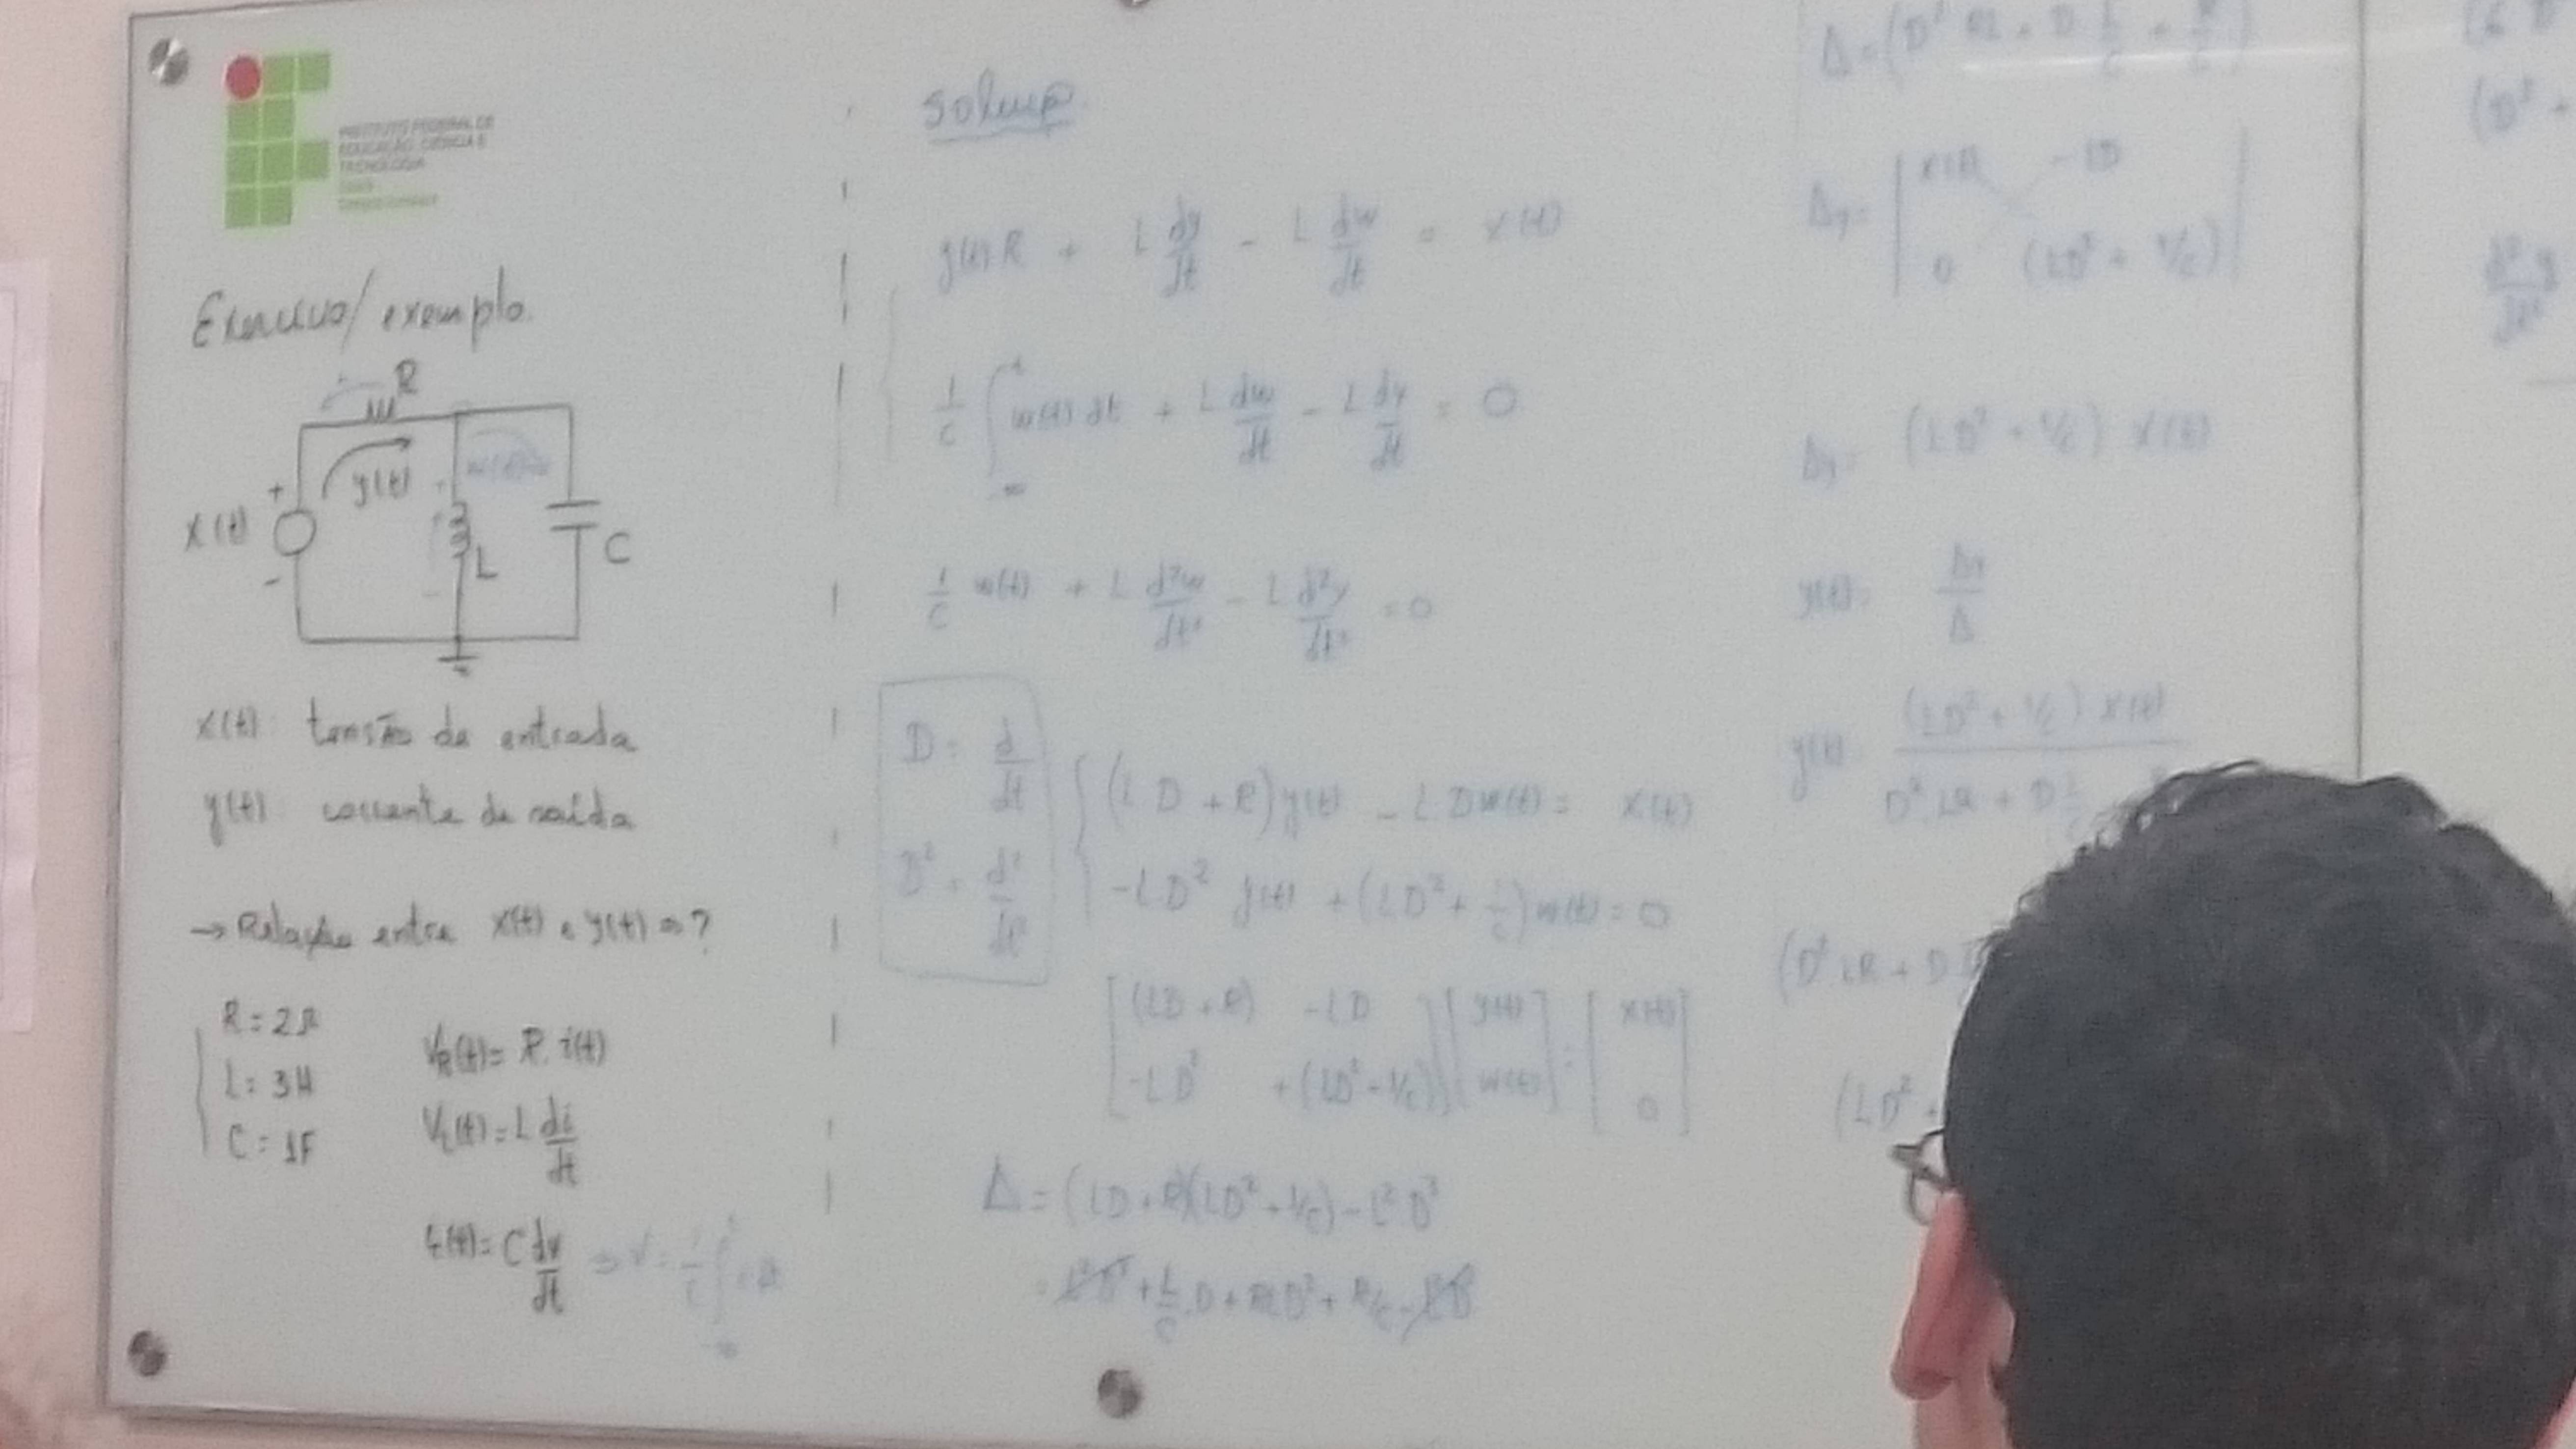 INSTITUTO FEDERAL DE
EDUCAÇÃO, CIÊNCIA E
TECNOLOGIA
Exercício/exemplo.
R
y(t)
w(t)
+
x(t)
-
L
C
x(t): tensão de entrada
y(t): corrente de saída
→ Relação entre x(t) e y(t) = ?
R = 2Ω
L = 3H
C = 1F
V_R(t) = R. i(t)
V_L(t) = L di/dt
i(t) = C dv/dt ⇒ V = 1/C ∫
Solução
y(t) R + L dy/dt - L dw/dt = x(t)
1/C ∫ w(t) dt + L dw/dt - L dy/dt = 0
1/C w(t) + L d²w/dt² - L d²y/dt² = 0
D = d/dt
D² = d²/dt²
(L D + R) y(t) - L D w(t) = x(t)
-L D² y(t) + (L D² + 1/C) w(t) = 0
[(LD + R) -LD] [y(t)] = [x(t)]
[-LD² +(LD² + 1/C)] [w(t)] [0]
Δ = (LD + R)(LD² + 1/C) - L² D³
= L²D³ + L/C D + RLD² + R/C - L²D³
Δ = (D² RL + D L/C + R/C)
Δy = | x(t) -LD |
| 0 (LD² + 1/C) |
Δy = (LD² + 1/C) x(t)
y(t) = Δy/Δ
y(t) = (LD² + 1/C) x(t)
D² LR + D L/C
(D² LR + D
(LD² +
(D² +
d²y/dt²